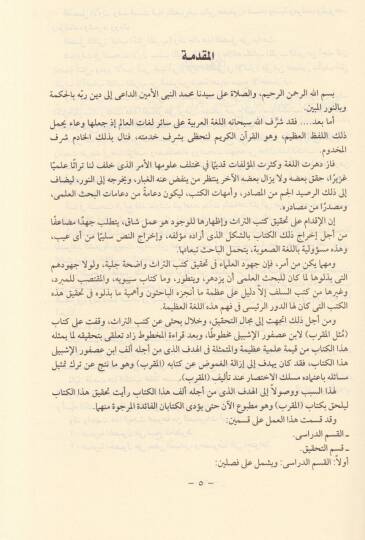 المقدمة
بسم الله الرحمن الرحيم، والصلاة على سيدنا محمد النبى الأمين الداعى إلى دين ربّه بالحكمة
وبالنور المبين.
أما بعد.... فقد شرَّف الله سبحانه اللغة العربية على سائر لغات العالم إذ جعلها وعاء يحمل
ذلك اللفظ العظيم، وهو القرآن الكريم لتحظى بشرف خدمته، فنال بذلك الخادم شرف
المخدوم.
فازدهرت اللغة وكثرت المؤلفات قديمًا في مختلف علومها الأمر الذى خلف لنا تراثًا علميًا
غزيرًا، حقق بعضه ولا يزال بعضه الآخر ينتظر من ينفض عنه الغبار، ويخرجه إلى النور، ليضاف
إلى ذلك الرصيد الجم من المصادر، وأمهات الكتب، ليكون دعامة من دعامات البحث العلمى،
ومصدرًا من مصادره.
إن الإقدام على تحقيق كتب التراث وإظهارها للوجود هو عمل شاق، يتطلب جهدًا مضاعفًا
من أجل إخراج ذلك الكتاب بالشكل الذى أراده مؤلفه، وإخراج النص سليمًا من أى عيب،
وهذه مسؤولية باللغة الصعوبة، يتحمل الباحث تبعاتها.
ومهما يكن من أمر، فإن جهود العلماء فى تحقيق كتب التراث واضحة جلية، ولولا جهودهم
التى بذلوها لما كان للبحث العلمى أن يزدهر، ويتطور، وما كتاب سيبويه، والمقتضب للمبرد،
وغيرها من كتب السلف إلاّ دليل على عظمة ما أنجزه الباحثون وأهمية ما بذلوه فى تحقيق هذه
الكتب التى كان لها الدور الرئيسى فى فهم هذه اللغة العظيمة.
ومن أجل ذلك اتجهت إلى مجال التحقيق، وخلال بحثى عن كتب التراث، وقفت على كتاب
(مُثل المقرب) لابن عصفور الإشبيلى مخطوطًا، وبعد قراءة المخطوط زاد تعلقى بتحقيقه لما يمثله
هذا الكتاب من قيمة علمية عظيمة والمتمثلة فى الهدف الذى من أجله ألف ابن عصفور الإشبيلى
هذا الكتاب، فقد كان يهدف إلى إزالة الغموض عن كتابه (المقرب) وهو ما نتج عن ترك تمثيل
مسائله باعتماده مسلك الاختصار عند تأليف (المقرب).
لهذا السبب ووصولاً إلى الهدف الذى من أجله ألف هذا الكتاب رأيت تحقيق هذا الكتاب
ليلحق بكتاب (المقرب) وهو مطبوع الآن حتى يؤدى الكتابان الفائدة المرجوة منهما.
وقد قسمت هذا العمل على قسمين:
ـ القسم الدراسى.
ـ قسم التحقيق.
أولاً: القسم الدراسى: ويشمل على فصلين:
ـ ٥ ـ